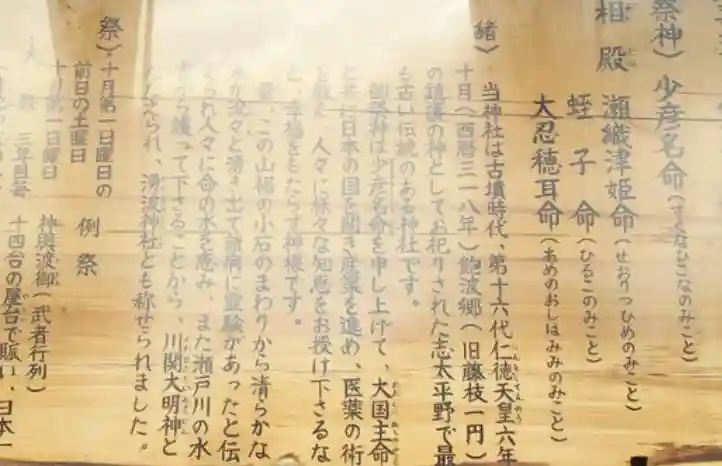 祭神）少彦名命（すくなひこなのみこと）
相殿　瀬織津姫命（せおりつひめのみこと）
蛭子命（ひるこのみこと）
大忍穂耳命（あめのおしほみみのみこと）
緒）
当神社は古墳時代、第十六代仁徳天皇六年
十月（西暦三一八年）飽波郷（旧藤枝一円）
の鎮護の神としてお祀りされた志太平野で最
も古い伝統のある神社です。
御祭神は少彦名命を申し上げて、大国主命
と共に日本の国を開き産業を進め、医薬の術
を教え、人々に様々な知恵をお授け下さるな
ど、幸福をもたらす神様です。
昔、この山裾の小石のまわりから清らかな
水が友々と湧き出て諸病に霊験があったと伝
えられ人々に命の水を恵み、また瀬戸川の水
から護って下さることから、川関大明神と
たたえられ、湯波神社とも称せられました。
祭）十月第一日曜日の
前日の土曜日
十月第一日曜日
三年目毎
例祭
神輿渡御（武者行列）
十四台の屋台で賑い、日本一